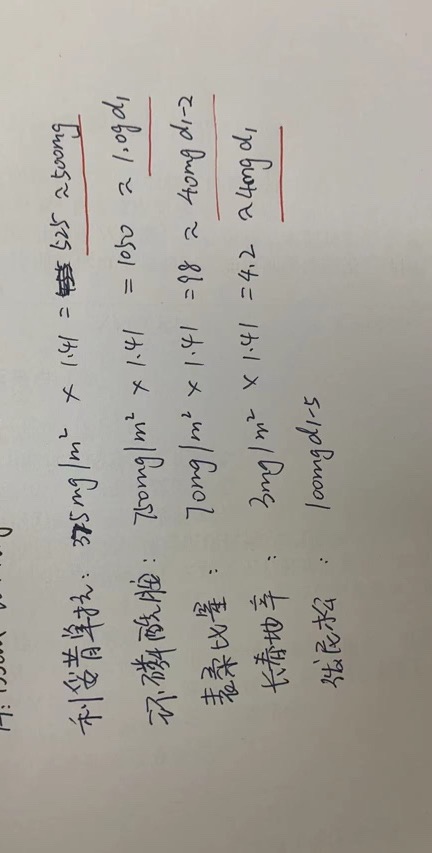 利妥昔单抗: 375mg/m² × 1.41 = 525 ≈500mg
环磷酰胺: 750mg/m² × 1.41 = 1050 ≈ 1.0g d1
表柔比星: 70mg/m² × 1.41 = 98 ≈ 40mg d1-2
长春地辛: 3mg/m² × 1.41 = 4.2 ≈4mg d1
强的松: 100mg d1-5